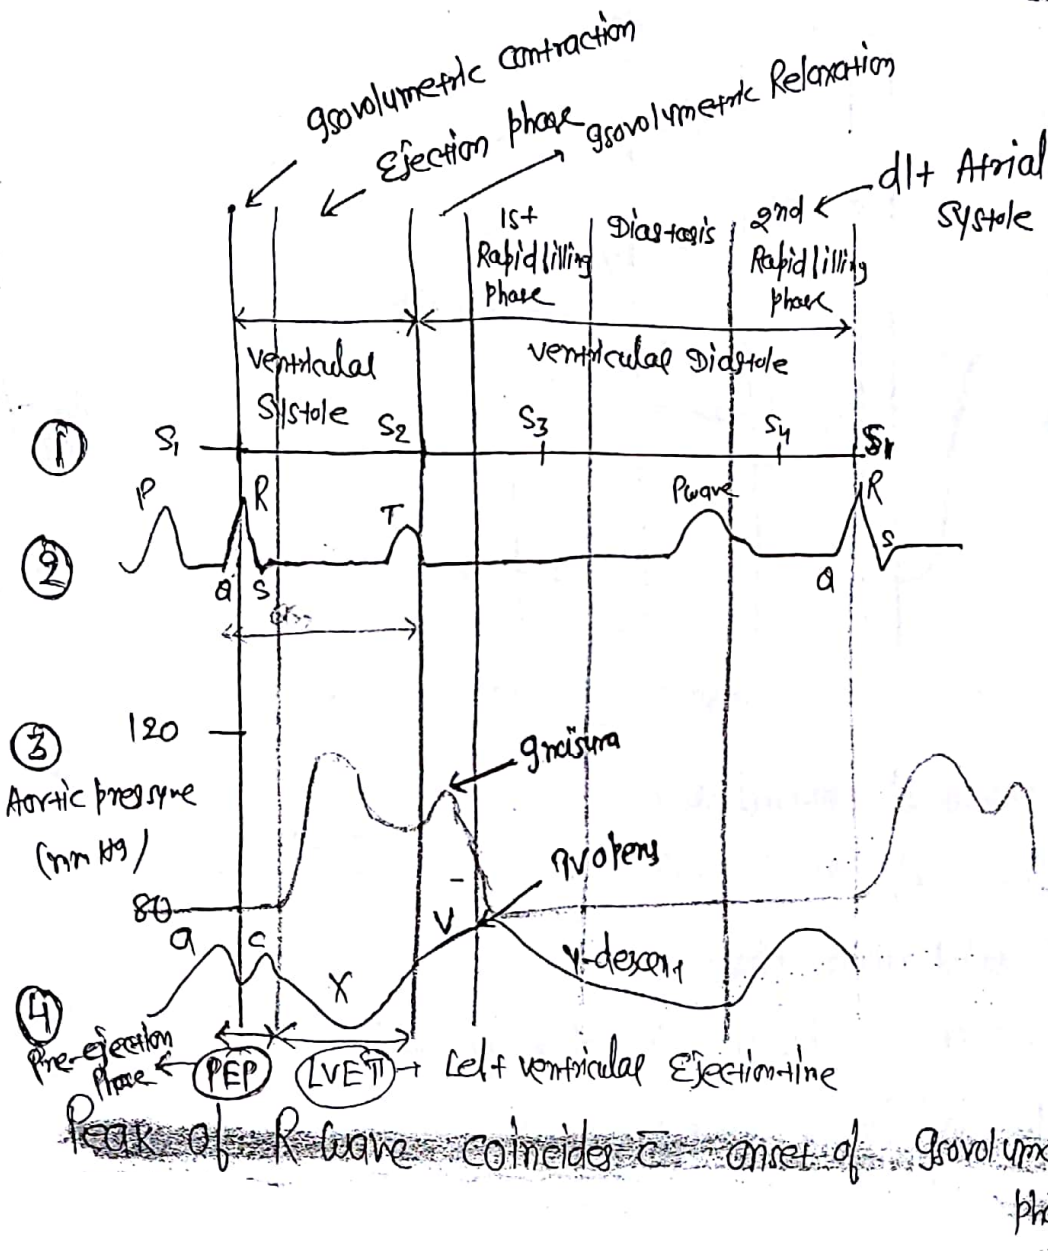 Isovolumetric contraction
Ejection phase
Isovolumetric Relaxation
1st
Rapid filling
phase
Diastasis
2nd
Rapid filling
phase
d/t Atrial
Systole
Ventricular
Systole
Ventricular Diastole
1
S1
S2
S3
S4
S1
2
P
R
Q
S
T
P wave
R
Q
S
3
120
Aortic pressure
(mm Hg)
80
Incisura
AV opens
4
a
c
X
V
Y-descent
Pre-ejection
Phase
PEP
LVET → Left ventricular Ejection time
Peak of R wave coincides c̄ onset of Isovolume
pha